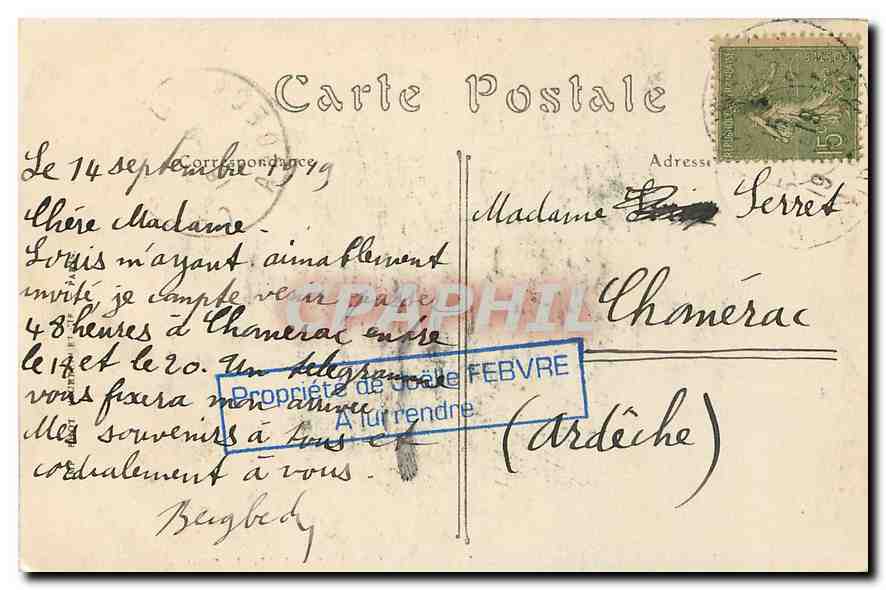 Carte Postale
Correspondance
Adresse
Le 14 septembre 1919
Chère Madame.
Louis m'ayant aimablement
invité, je compte venir passer
48 heures à Chomérac entre
le 18 et le 20. Un télégramme
vous fixera mon arrivée
Mes souvenirs à tous et
cordialement à vous.
Madame Serret
Chomérac
(Ardêche)
Propriété de Joëlle FEBVRE
A lui rendre
CPAPHIL
15